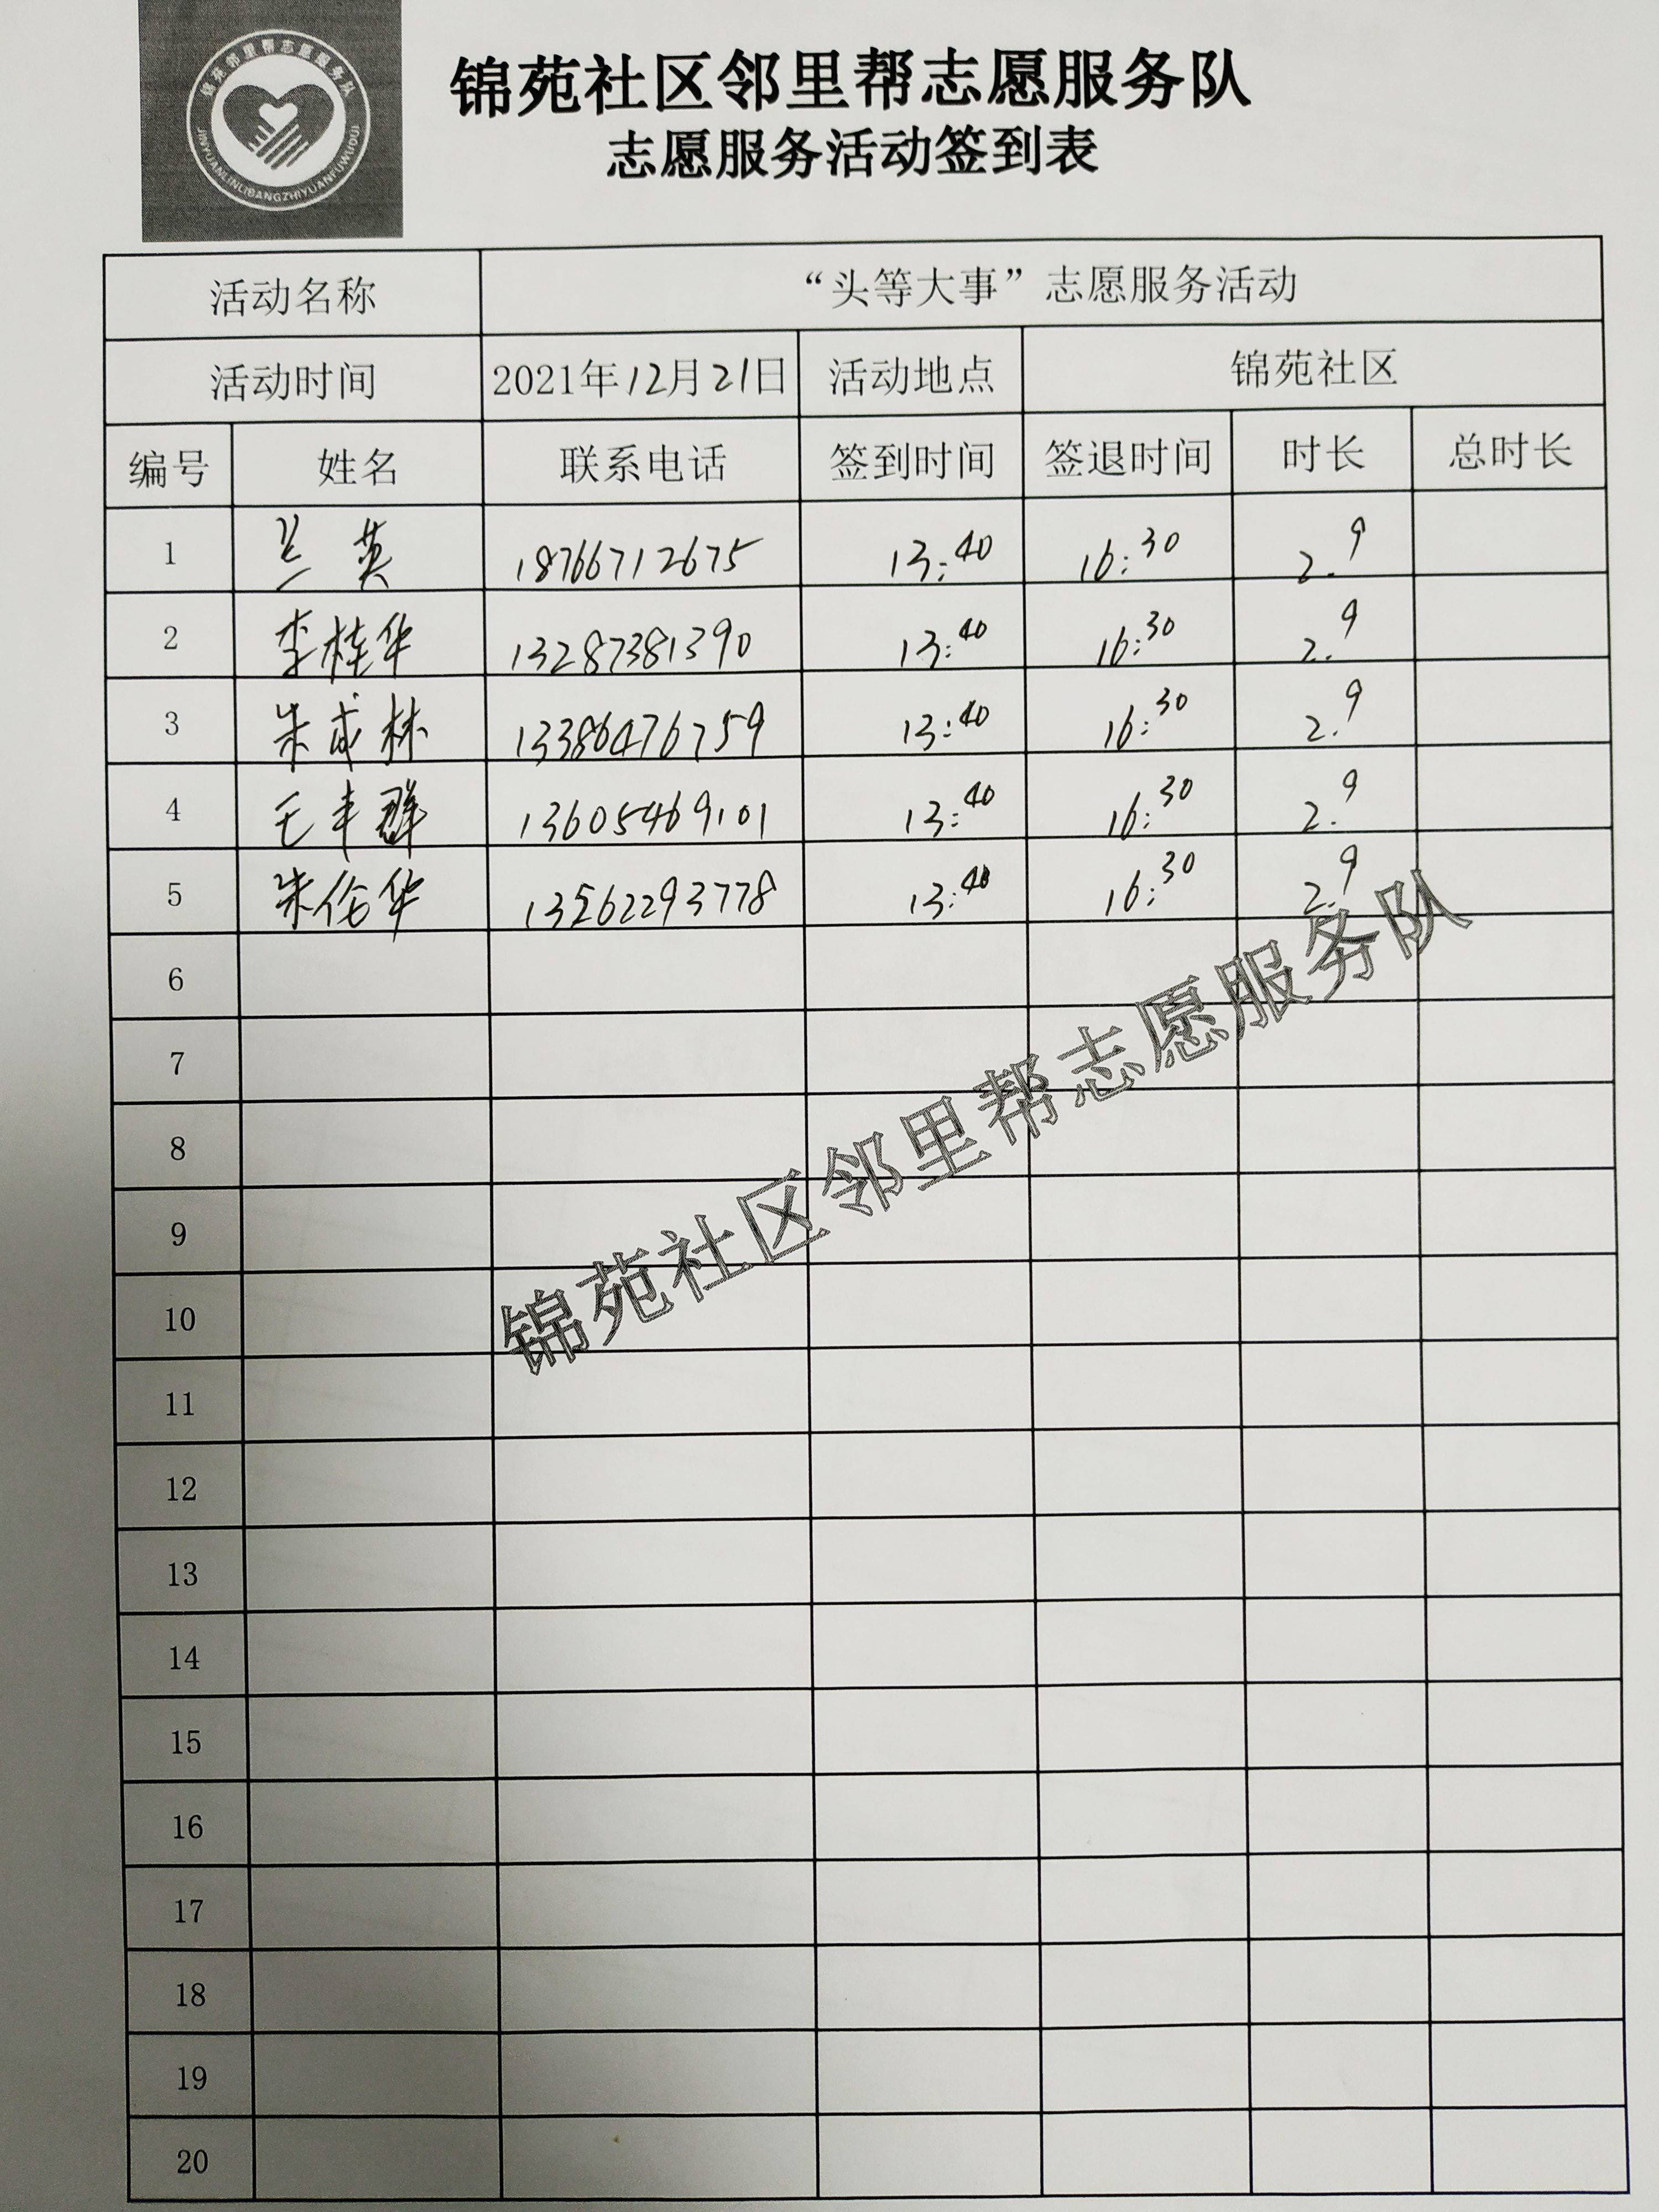 锦苑邻里帮志愿服务队
JINYUANLINLIBANGZHIYUANFUWUDUI
锦苑社区邻里帮志愿服务队
志愿服务活动签到表
活动名称 “头等大事”志愿服务活动
活动时间 2021年12月21日 活动地点 锦苑社区
编号 姓名 联系电话 签到时间 签退时间 时长 总时长
1 兰英 18766712675 13:40 16:30 2.9
2 李桂华 13287381390 13:40 16:30 2.9
3 朱成林 13386476759 13:40 16:30 2.9
4 王丰群 13605469101 13:40 16:30 2.9
5 朱伦华 13562293778 13:40 16:30 2.9
6
7
8
9
10
11
12
13
14
15
16
17
18
19
20
锦苑社区邻里帮志愿服务队